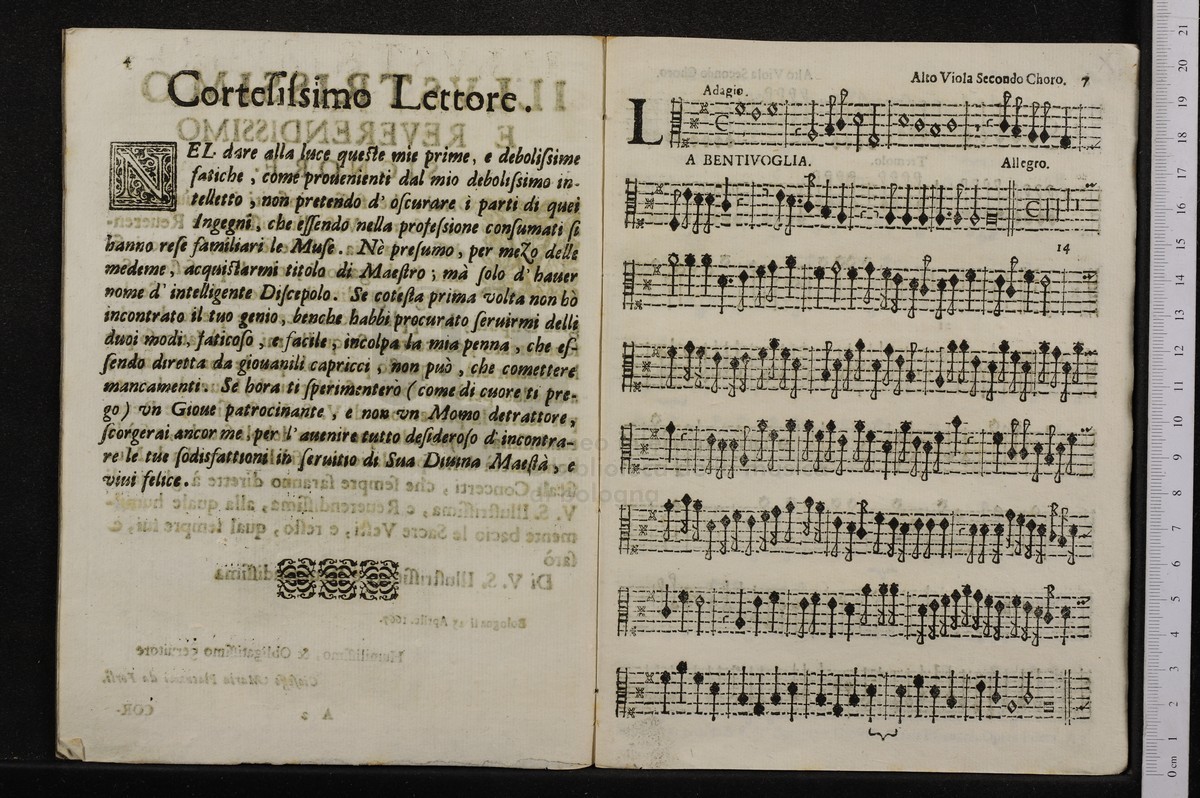 4
Corteſiſsimo Lettore.
NEL dare alla luce queſte mie prime, e deboliſsime
fatiche, come prouenienti dal mio deboliſsimo in-
telletto, non pretendo d' oſcurare i parti di quei
Ingegni, che eſſendo nella profeſsione conſumati ſi
hanno reſe familiari le Muſe. Nè preſumo, per mezo delle
medeme, acquiſtarmi titolo di Maeſtro; mà ſolo d' hauer
nome d' intelligente Diſcepolo. Se coteſta prima volta non hò
incontrato il tuo genio, benche habbi procurato ſeruirmi delli
duoi modi, faticoſo, e facile, incolpa la mia penna, che eſ-
ſendo diretta da giouanili capricci, non può, che comettere
mancamenti. Se hora ti ſperimenterò (come di cuore ti pre-
go) vn Gioue patrocinante, e non vn Momo detrattore,
ſcorgerai ancor me, per l' auenire tutto deſideroſo d' incontra-
re le tue ſodisfattioni in ſeruitio di Sua Diuina Maeſtà, e
viui felice.
Alto Viola Secondo Choro. 7
Adagio.
LA BENTIVOGLIA.
Allegro.
14